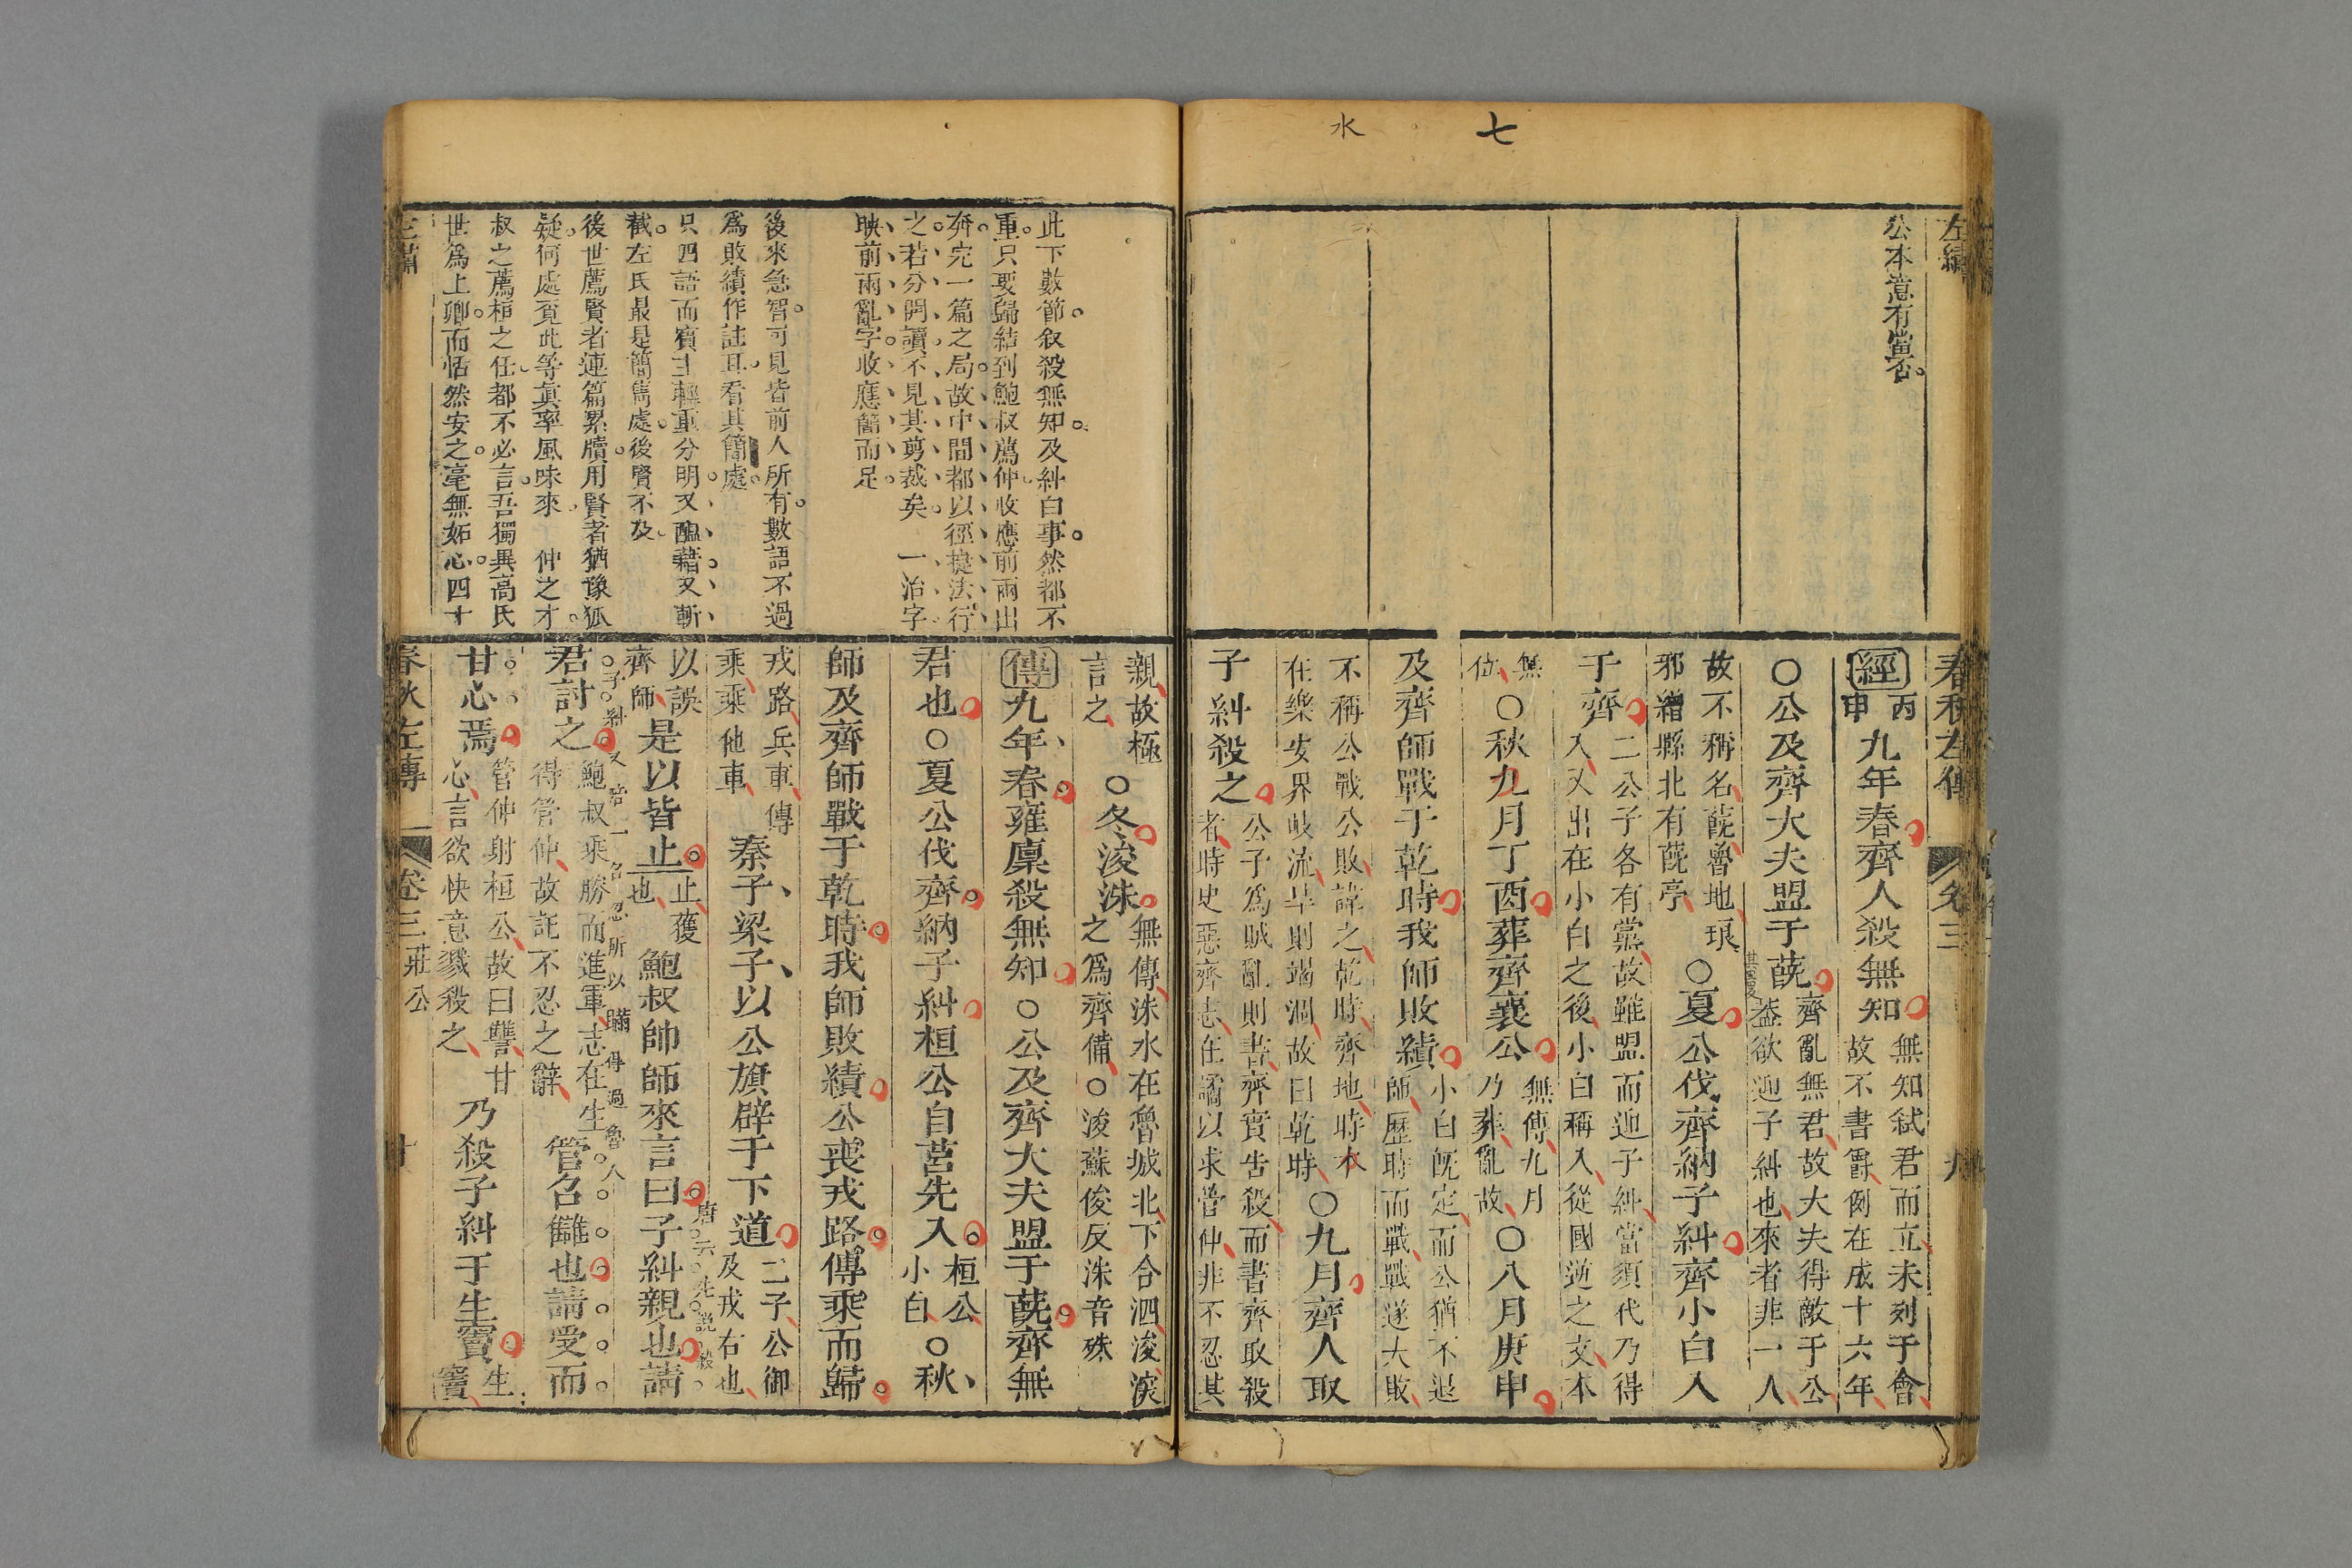 七
水
左繡
公本意有黨否
春秋左傳 卷三 九
經 丙申 九年春齊人殺無知 無知弑君而立未列于會故不書爵例在成十六年
○公及齊大夫盟于蔇 齊亂無君故大夫得敵于公蓋欲迎子糾也來者非一人
故不稱名蔇魯地琅邪繒縣北有蔇亭 ○夏公伐齊納子糾齊小白入
于齊 二公子各有黨故雖盟而迎子糾當須伐乃得入又出在小白之後小白稱入從國逆之文本
無位 ○秋七月丁酉葬齊襄公 無傳九月乃葬亂故 ○八月庚申
及齊師戰于乾時我師敗績 小白既定而公猶不退師歷時而戰戰遂大敗
不稱公戰公敗諱之乾時齊地時水在樂安界岐流旱則竭涸故曰乾時 ○九月齊人取
子糾殺之 公子為賊亂則書齊實告殺而書齊取殺者時史惡齊志在譎以求管仲非不忍其
親故極言之 ○冬浚洙 無傳洙水在魯城北下合泗浚深之為齊備○浚蘇俊反洙音殊
傳九年春雍廩殺無知○公及齊大夫盟于蔇齊無
君也○夏公伐齊納子糾桓公自莒先入 桓公小白 ○秋
師及齊師戰于乾時我師敗績公喪戎路傳乘而歸
戎路兵車傳乘乘他車 秦子梁子以公旗辟于下道 二子公御及戎右也
以誤齊師 是以皆止 止獲也 鮑叔帥師來言曰子糾親也請
君討之 鮑叔乘勝而進軍志在生得管仲故託不忍之辭 管召讎也請受而
甘心焉 管仲射桓公故曰讎甘心言欲快意戮殺之 乃殺子糾于生竇 生竇
春秋左傳 卷三 莊公 十
此下數節敘殺無知及糾白事然都不
重只要歸結到鮑叔薦仲收應前兩出
奔完一篇之局故中間都以徑捷法行
之若分開讀不見其剪裁矣 一治字
映前兩亂字收應簡而足
後來急智可見皆前人所有數語不過
為敗績作註耳看其簡處
只四語而賓主輕重分明又醞藉又斬
截左氏最是簡雋處後賢不及
後世薦賢者連篇累牘用賢者猶豫狐
疑何處覓此等真率風味來 仲之才
叔之薦桓之任都不必言吾獨異高氏
世為上卿而恬然安之毫無妬心四十